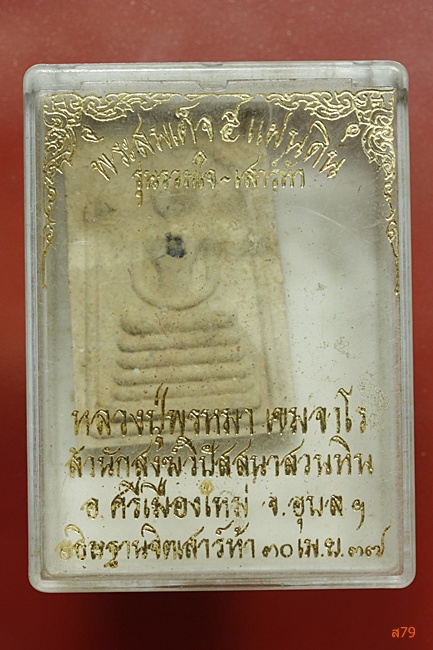 พระสมเด็จ ๕ แผ่นดิน
รุ่นรวมใจ~เสาร์ห้า
หลวงปู่พรหมา เขมจาโร
สำนักสงฆ์วิปัสสนาสวนหิน
อ.ศรีเมืองใหม่ จ.อุบลฯ
อธิษฐานจิตเสาร์ห้า ๓๐ เม.ย. ๓๗
ส79